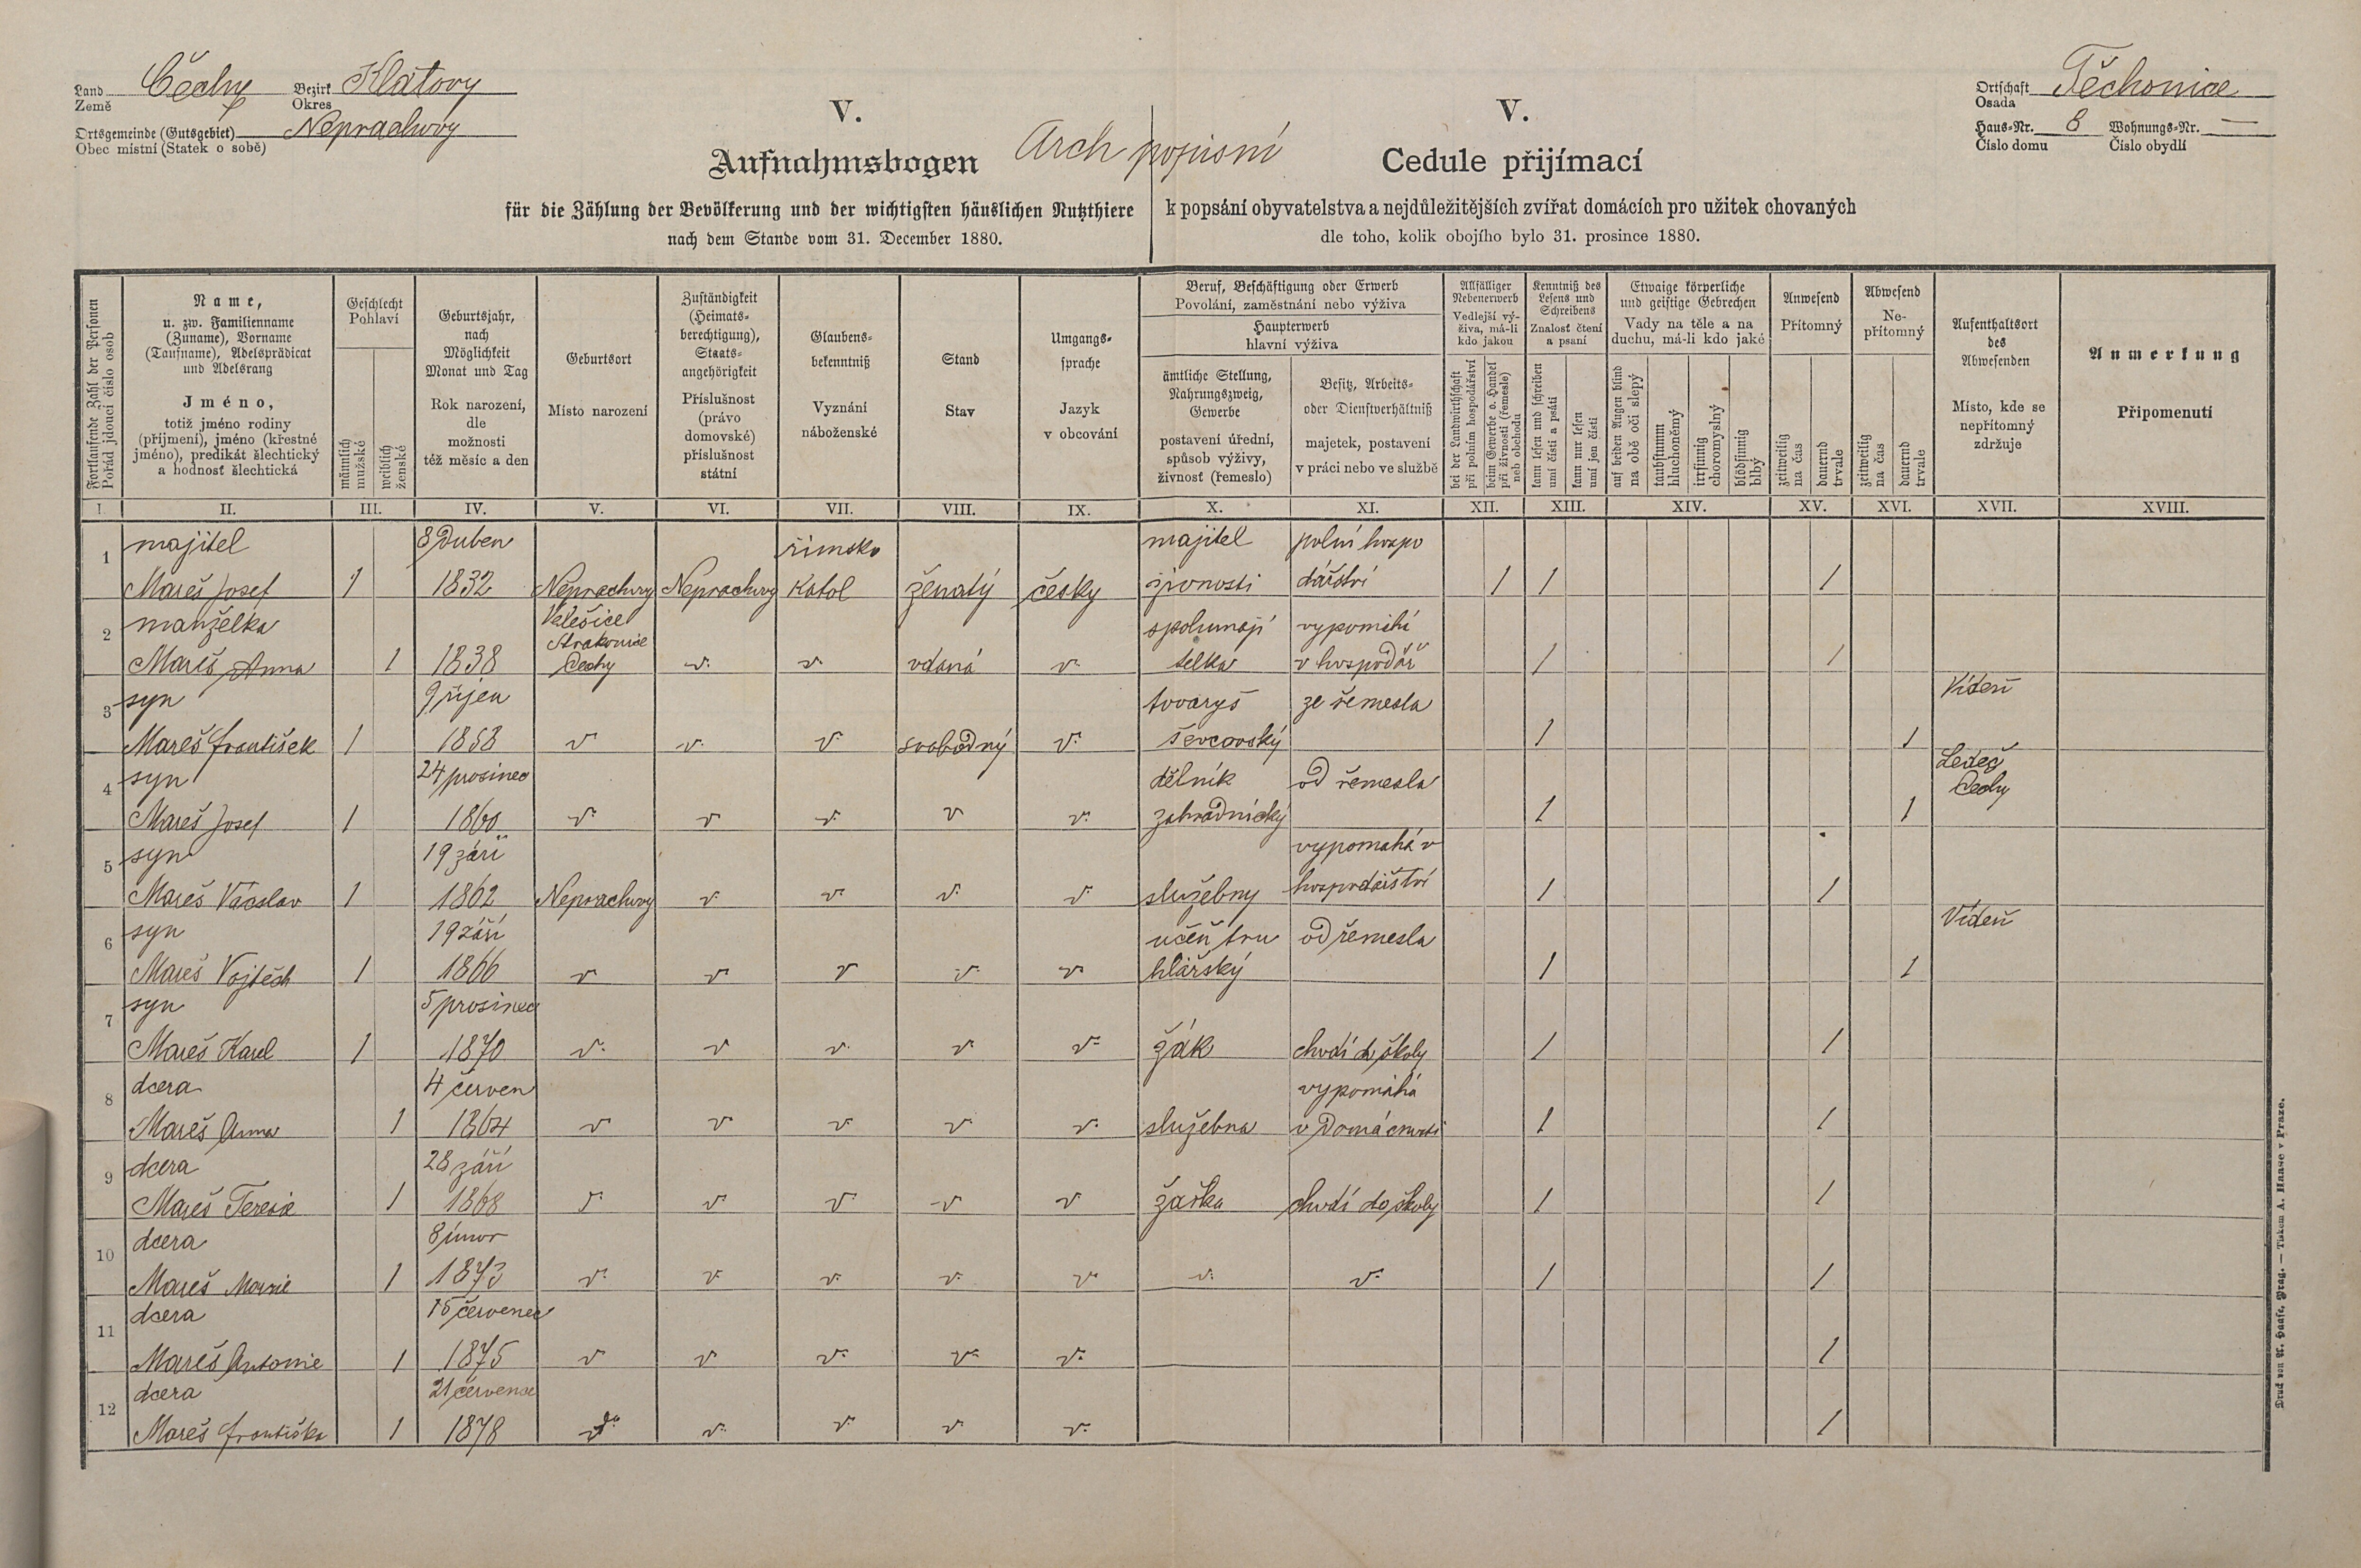 Land Čechy Bezirk Klatovy
Země Okres
Ortsgemeinde (Gutsgebiet) Neprachovy
Obec místní (Statek o sobě)
V.
Aufnahmsbogen
für die Zählung der Bevölkerung und der wichtigsten häuslichen Nutzthiere
nach dem Stande vom 31. December 1880.
Arch popisní
V.
Cedule přijímací
k popsání obyvatelstva a nejdůležitějších zvířat domácích pro užitek chovaných
dle toho, kolik obojího bylo 31. prosince 1880.
Ortschaft Těchonice
Osada
Haus-Nr. 8 Wohnungs-Nr. —
Číslo domu Číslo obydlí
Fortlaufende Zahl der Personen
Pořád jdoucí číslo osob
Name,
u. zw. Familienname
(Zuname), Vorname
(Taufname), Adelsprädicat
und Adelsrang
Jméno,
totiž jméno rodiny
(příjmení), jméno (křestné
jméno), predikát šlechtický
a hodnosť šlechtická
Geschlecht
Pohlaví
männlich
mužské
weiblich
ženské
Geburtsjahr,
nach
Möglichkeit
Monat und Tag
Rok narození,
dle
možnosti
též měsíc a den
Geburtsort
Místo narození
Zuständigkeit
(Heimats-
berechtigung),
Staats-
angehörigkeit
Příslušnost
(právo
domovské)
příslušnost
státní
Glaubens-
bekenntniß
Vyznání
náboženské
Stand
Stav
Umgangs-
sprache
Jazyk
v obcování
Beruf, Beschäftigung oder Erwerb
Povolání, zaměstnání nebo výživa
Haupterwerb
hlavní výživa
ämtliche Stellung,
Nahrungszweig,
Gewerbe
postavení úřední,
spůsob výživy,
živnosť (řemeslo)
Besitz, Arbeits-
oder Dienstverhältniß
majetek, postavení
v práci nebo ve službě
Allfälliger
Nebenerwerb
Vedlejší vý-
živa, má-li
kdo jakou
bei der Landwirthschaft
při polním hospodářství
beim Gewerbe o. Handel
při živnosti (řemesle)
neb obchodu
Kenntniß des
Lesens und
Schreibens
Znalosť čtení
a psaní
kann lesen und schreiben
umí čísti a psáti
kann nur lesen
umí jen čísti
Etwaige körperliche
und geistige Gebrechen
Vady na těle a na
duchu, má-li kdo jaké
auf beiden Augen blind
na obě oči slepý
taubstumm
hluchoněmý
irrsinnig
choromyslný
blödsinnig
blbý
Anwesend
Přítomný
zeitweilig
na čas
dauernd
trvale
Abwesend
Ne-
přítomný
zeitweilig
na čas
dauernd
trvale
Aufenthaltsort
des
Abwesenden
Místo, kde se
nepřítomný
zdržuje
Anmerkung
Připomenutí
I. II. III. IV. V. VI. VII. VIII. IX. X. XI. XII. XIII. XIV. XV. XVI. XVII. XVIII.
majitel 8 Duben římsko majitel polní hospo
1 Mareš Josef 1 1832 Neprachovy Neprachovy Katol ženatý česky živnosti dářství 1 1 1
manželka Velešice spolumaji vypomáhá
2 Strakonice
Mareš Anna 1 1838 Čechy v. v. vdaná v. telka v hospodář 1 1
syn 9 říjen tovaryš ze řemesla Vídeň
3 Mareš František 1 1858 v v. v svobodný v. ševcovský 1 1
syn 24 prosinec dělník od řemesla Ledeč
4 Čechy
Mareš Josef 1 1860 v. v v. v v. zahradnický 1 1
syn 19 září vypomahá v
5 Mareš Václav 1 1862 Neprachovy v. v. v. v. služebny hospodářství 1 1
syn 19 září učeň tru od řemesla Vídeň
6 Mareš Vojtěch 1 1866 v v. v v. v hlářský 1 1
syn 5 prosinec
7 Mareš Karel 1 1870 v. v v. v. v. žák chodí do školy 1 1
dcera 4 červen vypomáhá
8 Mareš Anna 1 1864 v v. v. v. v. služebna v domácnosti 1 1
dcera 28 září
9 Mareš Teresie 1 1868 v. v v. v. v žačka chodí do školy 1 1
dcera 8 únor
10 Mareš Marie 1 1873 v. v. v. v. v. v. v. 1 1
dcera 15 červenec
11 Mareš Antonie 1 1875 v v v. v. v. 1
dcera 21 červenec
12 Mareš Františka 1 1878 v v. v. v v. 1
Druck von A. Haase, Prag. — Tiskem A. Haase v Praze.